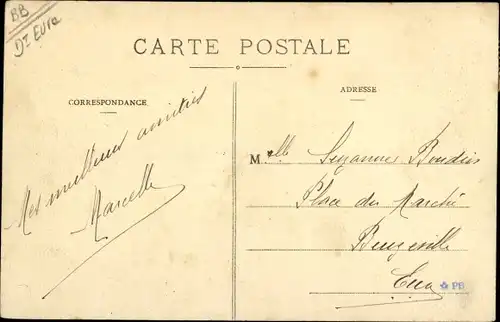 BB
Dt Eure
CARTE POSTALE
CORRESPONDANCE
ADRESSE
Mes meilleures amitiés
Marcelle
Mlle Suzanne Boudin
Place du Marché
Beuzeville
Eure
PB